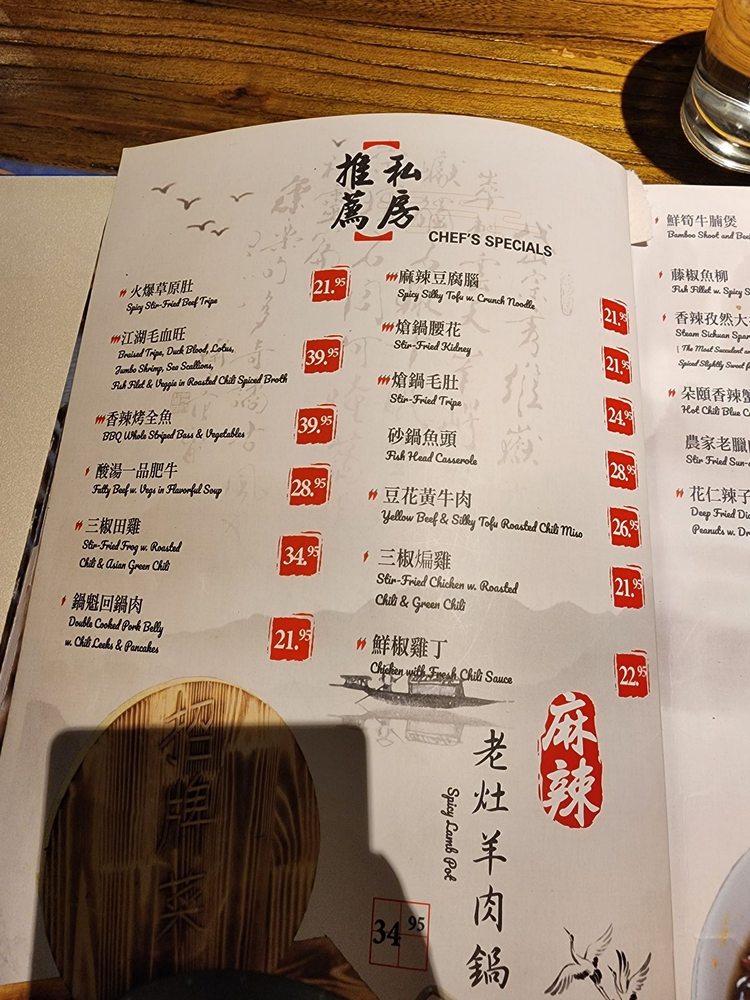 私房
推薦
CHEF'S SPECIALS
火爆草原肚
Spicy Stir-Fried Beef Tripe
21.95
江湖毛血旺
Braised Tripe, Duck Blood, Lotus,
Jumbo Shrimp, Sea Scallions,
Fish Filet & Veggie in Roasted Chili Spiced Broth
39.95
香辣烤全魚
BBQ Whole Striped Bass & Vegetables
39.95
酸湯一品肥牛
Fatty Beef w. Vegs in Flavorful Soup
28.95
三椒田雞
Stir-Fried Frog w. Roasted
Chili & Asian Green Chili
34.95
鍋魁回鍋肉
Double Cooked Pork Belly
w. Chili Leeks & Pancakes
21.95
麻辣豆腐腦
Spicy Silky Tofu w. Crunch Noodle
21.95
熗鍋腰花
Stir-Fried Kidney
21.95
熗鍋毛肚
Stir-Fried Tripe
24.95
砂鍋魚頭
Fish Head Casserole
28.95
豆花黃牛肉
Yellow Beef & Silky Tofu Roasted Chili Miso
26.95
三椒煸雞
Stir-Fried Chicken w. Roasted
Chili & Green Chili
21.95
鮮椒雞丁
Chicken with Fresh Chili Sauce
22.95
招牌菜
麻辣
老灶羊肉鍋
Spicy Lamb Pot
34.95
鮮筍牛腩煲
Bamboo Shoot and
藤椒魚柳
Fish Fillet w. Spicy
香辣孜然大
Steam Sichuan
( The Most Succulent
Spiced Slightly Sweet
朵頤香辣蟹
Hot Chili Blue
農家老臘
Stir Fried
花仁辣子
Deep Fried
Peanuts w.